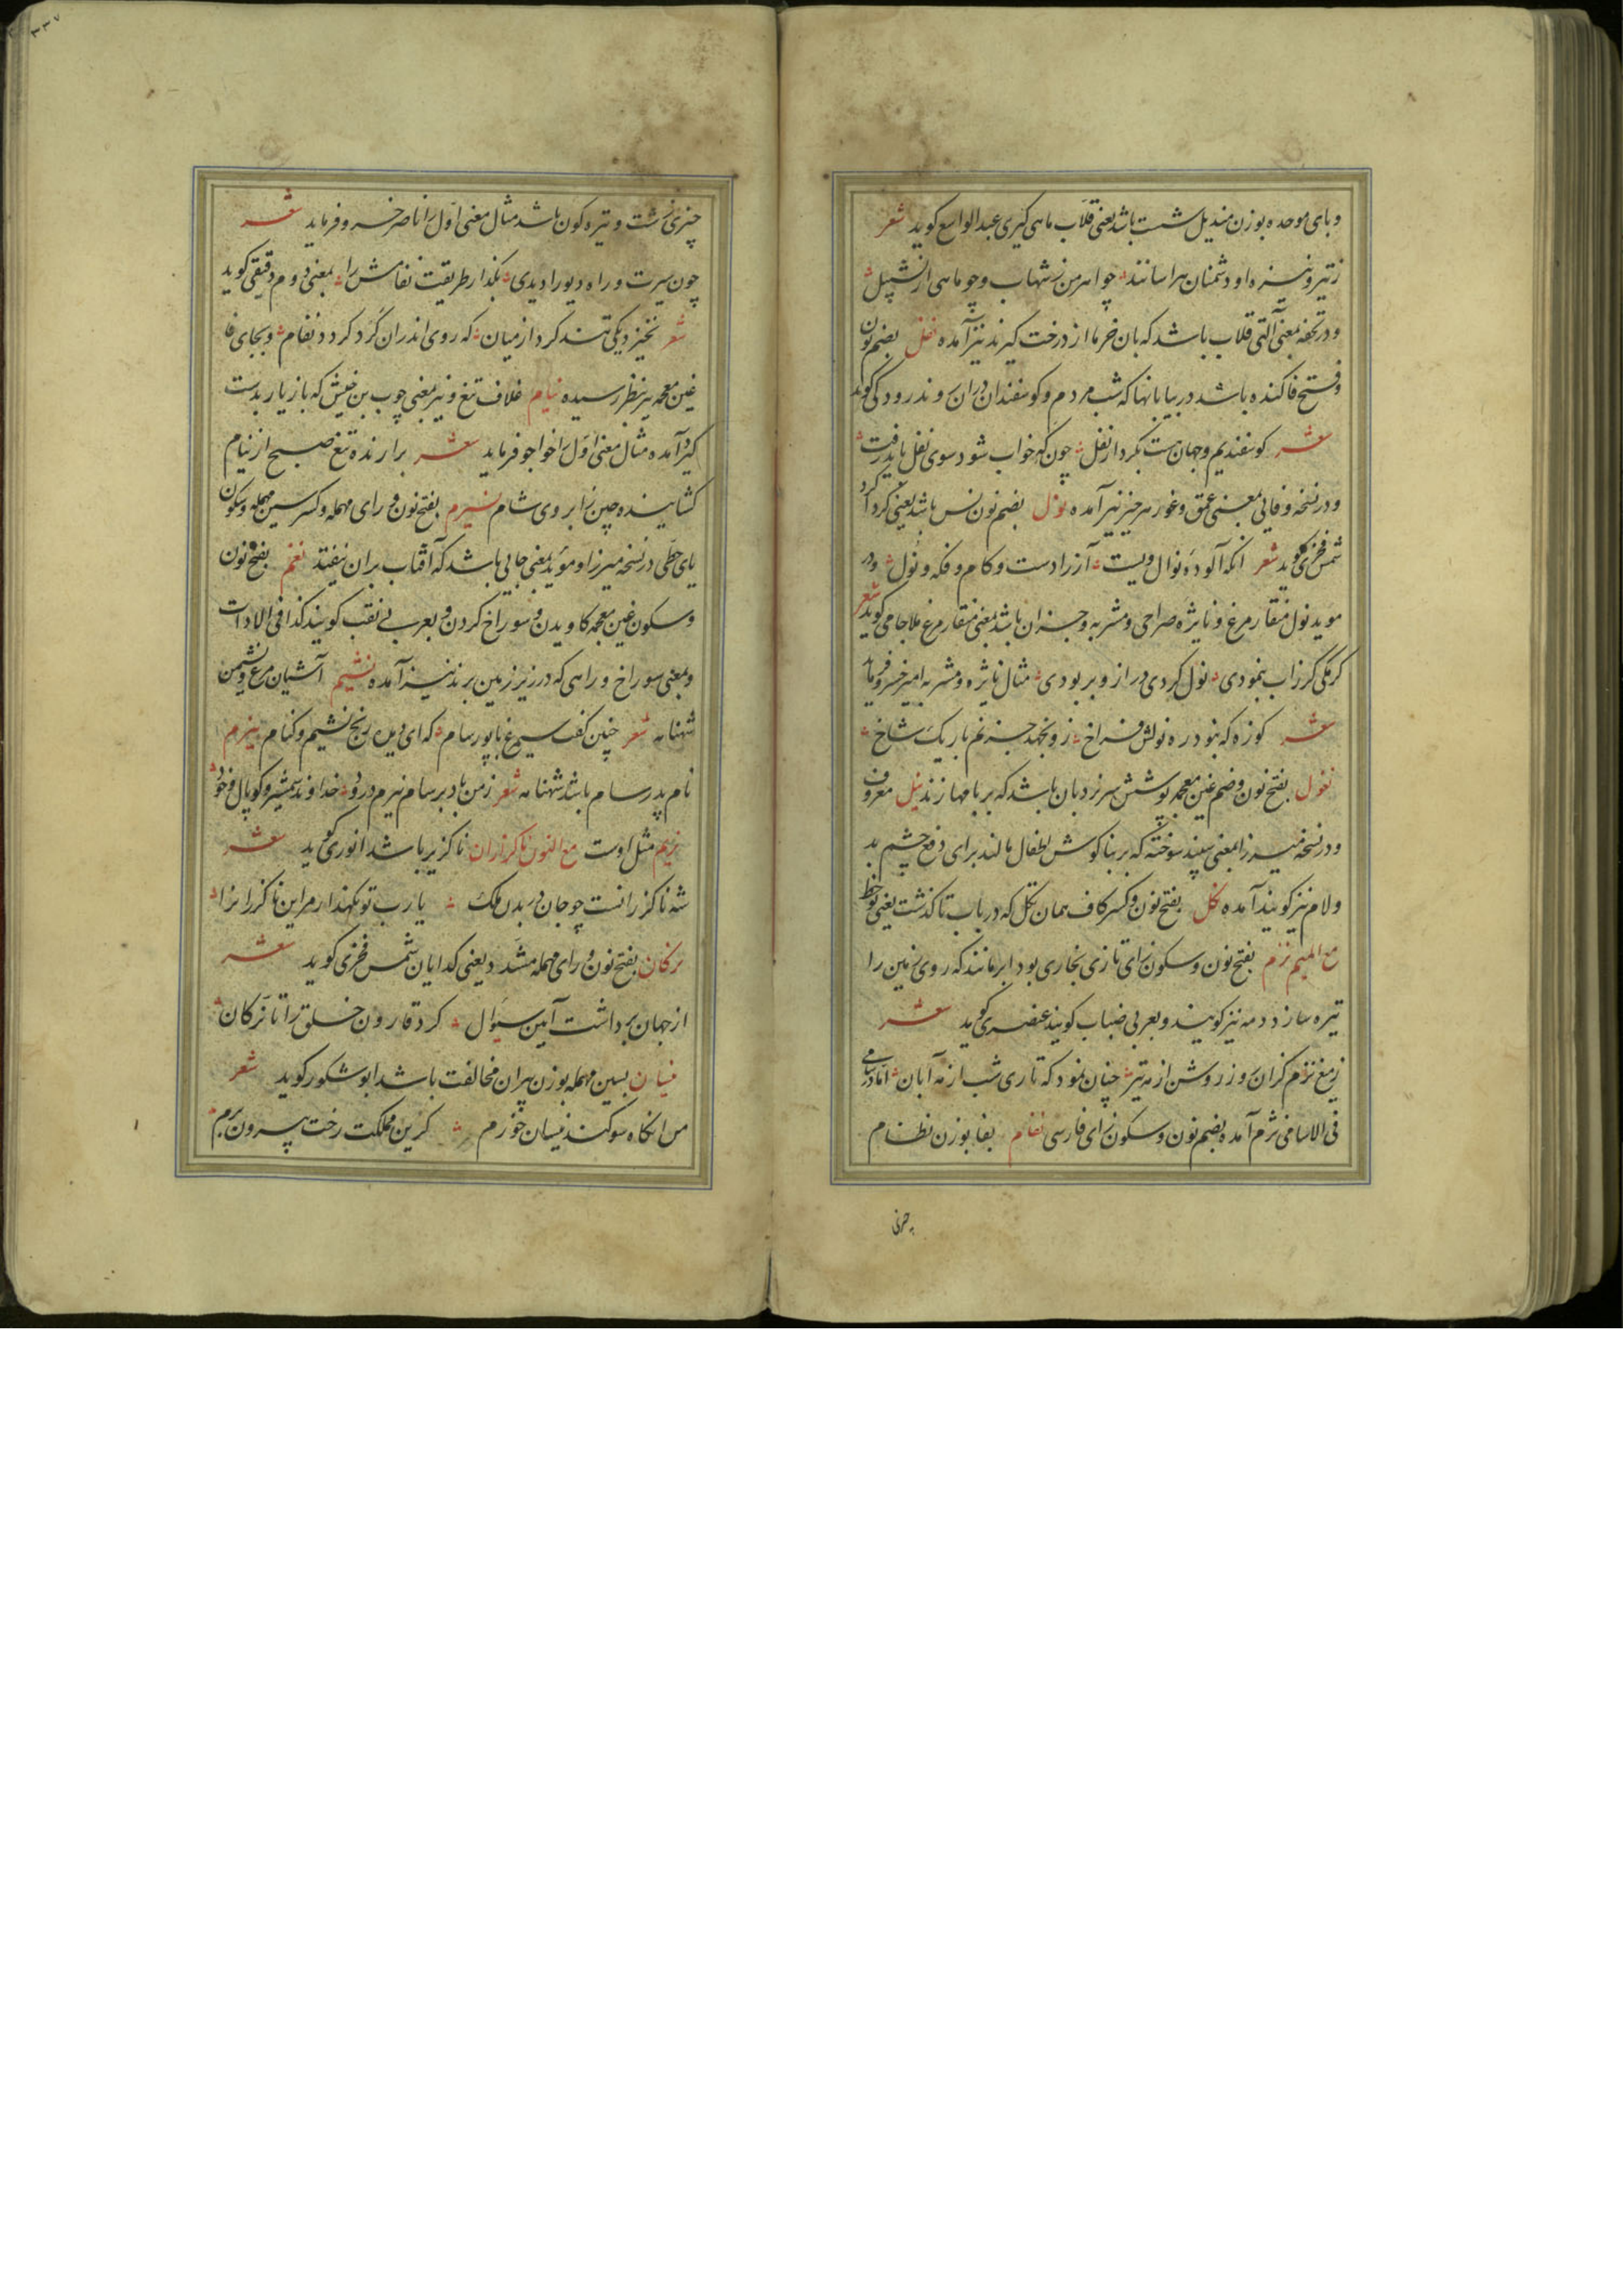 و بای موحده بوزن مندیل شست باشد یعنی قلاب ماهی گیری عبدالواسع کوید شعر
زتیر و نیزه او دشمنان هراسانند چو اهرمن ز شهاب و چو ماهی از نشپیل
و در تحفه بمعنی آلتی قلاب باشد که بان خرما از درخت گیرند نیز آمده نغل بضم نون
و فتح فا کنده باشد در بیابانها که شب مردم و کوسفندان دران روند رودکی کوید
شعر کوسفندیم و جهان هست بکردار نغل چون که خواب شود سوی نغل باید رفت
و در نسخه وفائی بمعنی عمق و غور هر چیز نیز آمده نول بضم نون نس باشد یعنی گرد اکرد
شمس فخری کوید شعر انکه آلوده نوال ویست آز را دست و کام و فکه و نول و در
موید نول منقار مرغ و نایژه صراحی و مشربه و جز ان باشد بمعنی منقار مرغ ملا جامی کوید شعر
کرمکی کر ز آب بنمودی نول کردی دراز و بربودی مثال نایژه و مشربه امیر خسرو فرماید
شعر کوزه که بنود ره نولش فراخ زو نجهد جز نم باریک شاخ
نغول بفتح نون و ضم غین معجمه پوشش سر نردبان باشد که بر بامها زنند نیل معروف
و در نسخه میرزا بمعنی سپند سوخته که بر بناکوش اطفال مالند برای دفع چشم بد
و لام نیز کویند آمده نکل بفتح نون و کسر کاف همان تکل که در باب تا کذشت یعنی نوخط
مع المیم نزم بفتح نون و سکون زای تازی بخاری بود ابر مانند که روی زمین را
تیره سازد و مه نیز کویند و بعربی ضباب کویند عنصری کوید شعر
زمیغ نزم کران روز روشن از مه تیر چنان نمود که تاری شب از مه آبان اما در سامی
فی الاسامی نژم آمده بضم نون و سکون زای فارسی نفام بفا بوزن نظام
چیزی زشت و تیره کون باشد مثال معنی اول را ناصر خسرو فرماید شعر
چون سیرت و راه دیو را دیدی بکذار طریقت نفامش را بمعنی دوم دقیقی کوید
شعر بخیزد یکی تند کرد از میان که روی اندران کرد کردد نفام و بجای فا
غین معجمه نیز بنظر رسیده نیام غلاف تیغ و نیز بمعنی چوب بن خیش که بازیار بدست
کیرد آمده مثال معنی اول را خواجو فرماید شعر برارنده تیغ صبح از نیام
کشاینده چین ز ابروی شام نسیرم بفتح نون و رای مهمله و کسر سین مهمله و سکون
یای حطی در نسخه میرزا و موید بمعنی جایی باشد که آفتاب بران نیفتد نغم بفتح نون
و سکون غین معجمه کاویدن و سوراخ کردن و بعربی نقب کویند کذا فی الادات
و بمعنی سوراخ و راهی که در زیر زمین برند نیز آمده نشیم آشیان مرغ و نشیمن
شهنامه شعر چنین کفت سیمرغ با پور سام که ای دیده رنج نشیم و کنام نیرم
نام پدر سام باشد شهنامه شعر ز من باد بر سام نیرم درود خداوند شمشیر و کوپال و خود
نریم مثل اوست مع النون ناکزران ناکزیر باشد انوری کوید شعر
شه ناکزرانست چو جان در بدن ملک یارب تو نکهدار مر این ناکزرانرا
نرکان بفتح نون و رای مهمله مشدد یعنی کدایان شمس فخری کوید شعر
از جهان برداشت آیین سوال کرد قارون خلق را تا نرکان
نیسان بسین مهمله بوزن پیران مخالفت باشد ابوشکور کوید شعر
من انکاه سوکند نیسان خورم کزین مملکت رخت بیرون برم
چیزی
۳۳۷